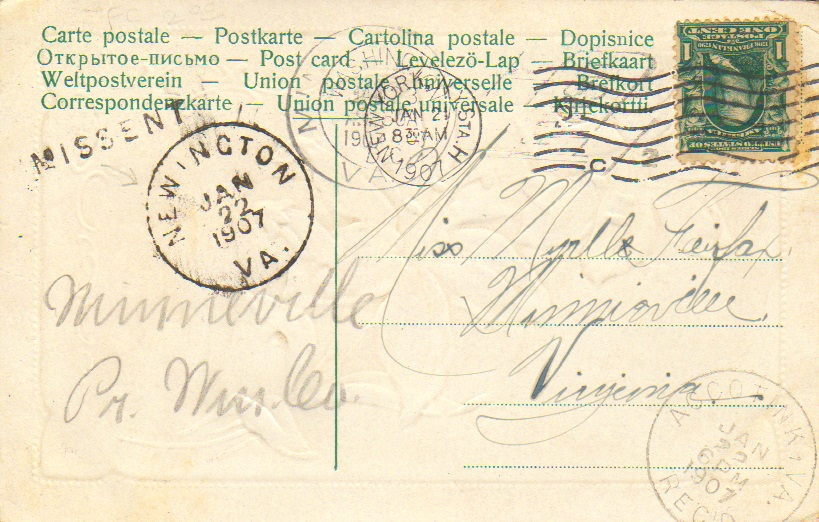 Carte postale — Postkarte — Cartolina postale — Dopisnice
Открытое-письмо — Post card — Levelezö-Lap — Briefkaart
Weltpostverein — Union postale universelle — Brefkort
Correspondenzkarte — Union postale universale — Kirjekortti
NEW YORK STA.H
JAN 21
8 30 AM
1907
MISSENT
NEWINGTON
JAN
22
1907
VA.
Miss Myrtle Fairfax
Minnieville
Virginia.
Minnieville
Pr. Wm. Co.
ACCOTINK, VA.
JAN
22
6 PM
1907
REC'D
ONE CENT
1